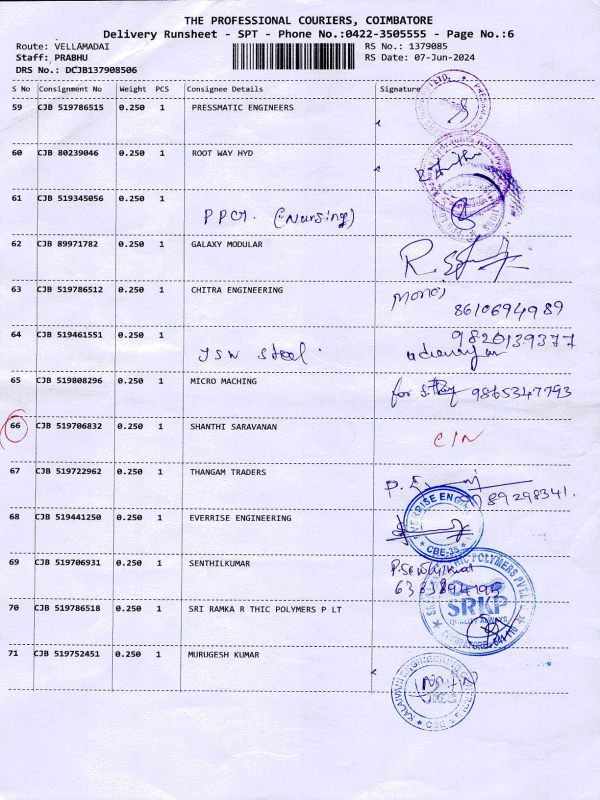 THE PROFESSIONAL COURIERS, COIMBATORE
Delivery Runsheet - SPT - Phone No.:0422-3505555 - Page No.:6
Route: VELLAMADAI RS No.: 1379085
Staff: PRABHU RS Date: 07-Jun-2024
DRS No.: DCJB137908506
S No Consignment No Weight PCS Consignee Details Signature
59 CJB 519786515 0.250 1 PRESSMATIC ENGINEERS
60 CJB 80239046 0.250 1 ROOT WAY HYD
61 CJB 519345056 0.250 1
(Nursing)
62 CJB 89971782 0.250 1 GALAXY MODULAR
63 CJB 519786512 0.250 1 CHITRA ENGINEERING
Manoj
8610694989
64 CJB 519461551 0.250 1
JSW Steel. 9820139377
65 CJB 519808296 0.250 1 MICRO MACHING
for 9865347793
66 CJB 519706832 0.250 1 SHANTHI SARAVANAN
CIN
67 CJB 519722962 0.250 1 THANGAM TRADERS
89298341.
68 CJB 519441250 0.250 1 EVERRISE ENGINEERING
CBE-35
69 CJB 519706931 0.250 1 SENTHILKUMAR
70 CJB 519786518 0.250 1 SRI RAMKA R THIC POLYMERS P LT
SRKP
QUALITY ALWAYS
71 CJB 519752451 0.250 1 MURUGESH KUMAR